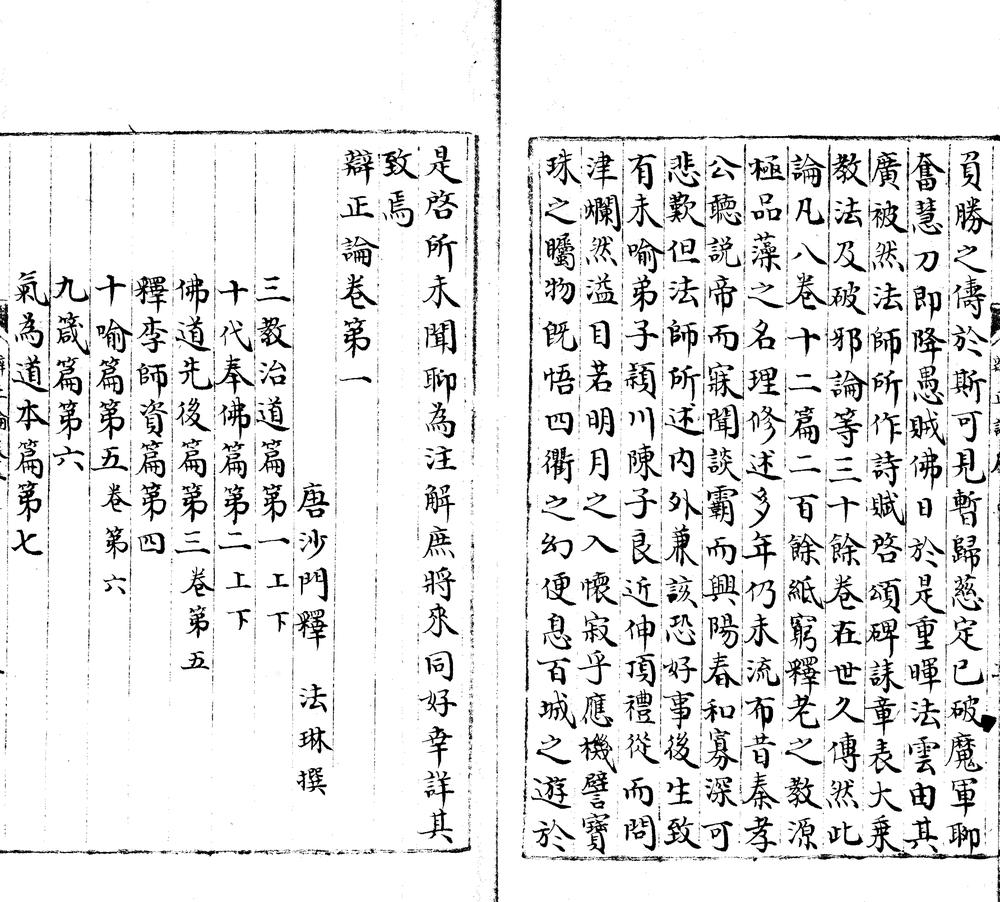 負勝之儔於斯可見暫歸慈定已破魔軍聊
奮慧刀即降愚賊佛日於是重暉法雲由其
廣被然法師所作詩賦啓頌碑誄章表大乗
教法及破邪論等三十餘卷在世久傳然此
論凡八卷十二篇二百餘紙窮釋老之教源
極品藻之名理修述多年仍未流布昔秦孝
公聽説帝而寐聞談霸而興陽春和寡深可
悲歎但法師所述内外兼該恐好事後生致
有未喻弟子潁川陳子良近伸頂禮從而問
津爛然溢目若明月之入懷寂乎應機譬寶
珠之矚物既悟四衢之幻便息百城之遊於
是啓所未聞聊為注解庶將來同好幸詳其
致焉
辯正論卷第一
唐沙門釋 法琳撰
三教治道篇第一上下
十代奉佛篇第二上下
佛道先後篇第三卷第五
釋李師資篇第四
十喻篇第五卷第六
九箴篇第六
氣為道本篇第七